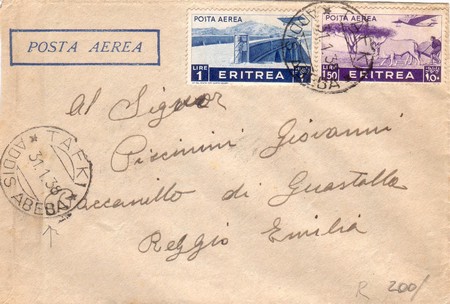 POSTA AEREA
POSTA AEREA
LIRE
1
ERITREA
POSTA AEREA
LIRE
1.50
ERITREA
10
Al Signor
Piccinini Giovanni
Baccanello di Guastalla
Reggio Emilia
TAFKI
31.1.38
ADDIS ABEBA
R 200/